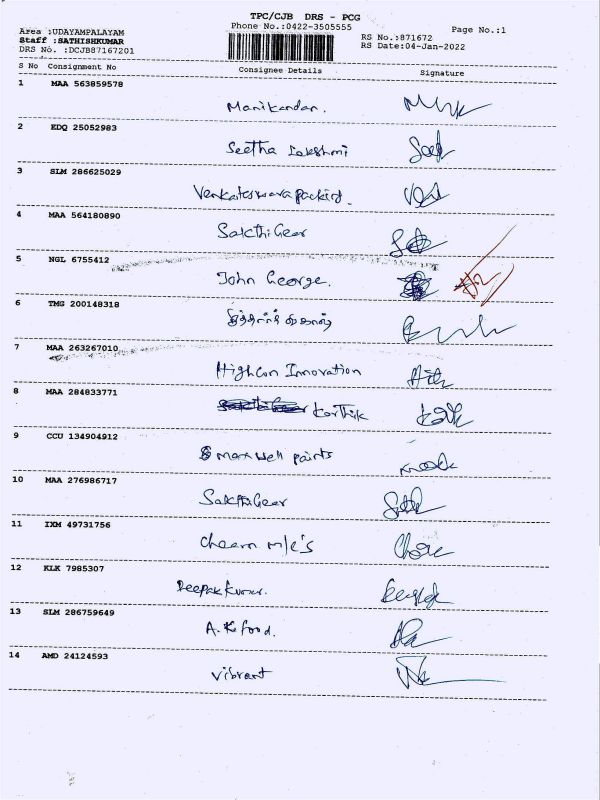 TPC/CJB DRS - PCG
Phone No.:0422-3505555
Page No.:1
Area :UDAYAMPALAYAM
Staff :SATHISHKUMAR
DRS No. :DCJB87167201
RS No.:871672
RS Date:04-Jan-2022
S No Consignment No Consignee Details Signature
1 MAA 563859578
Manikandan.
2 EDQ 25052983
Seetha Lakshmi
3 SLM 286625029
Venkateswara packing.
4 MAA 564180890
Sakthi Gear
5 NGL 6755412
John George.
6 TMG 200148318
7 MAA 263267010
Highcon Innovation
8 MAA 284833771
Karthik
9 CCU 134904912
maxwell paints
10 MAA 276986717
Sakthi Gear
11 IXM 49731756
12 KLK 7985307
Deepak Kumar.
13 SLM 286759649
A.K food.
14 AMD 24124593
Vibrant